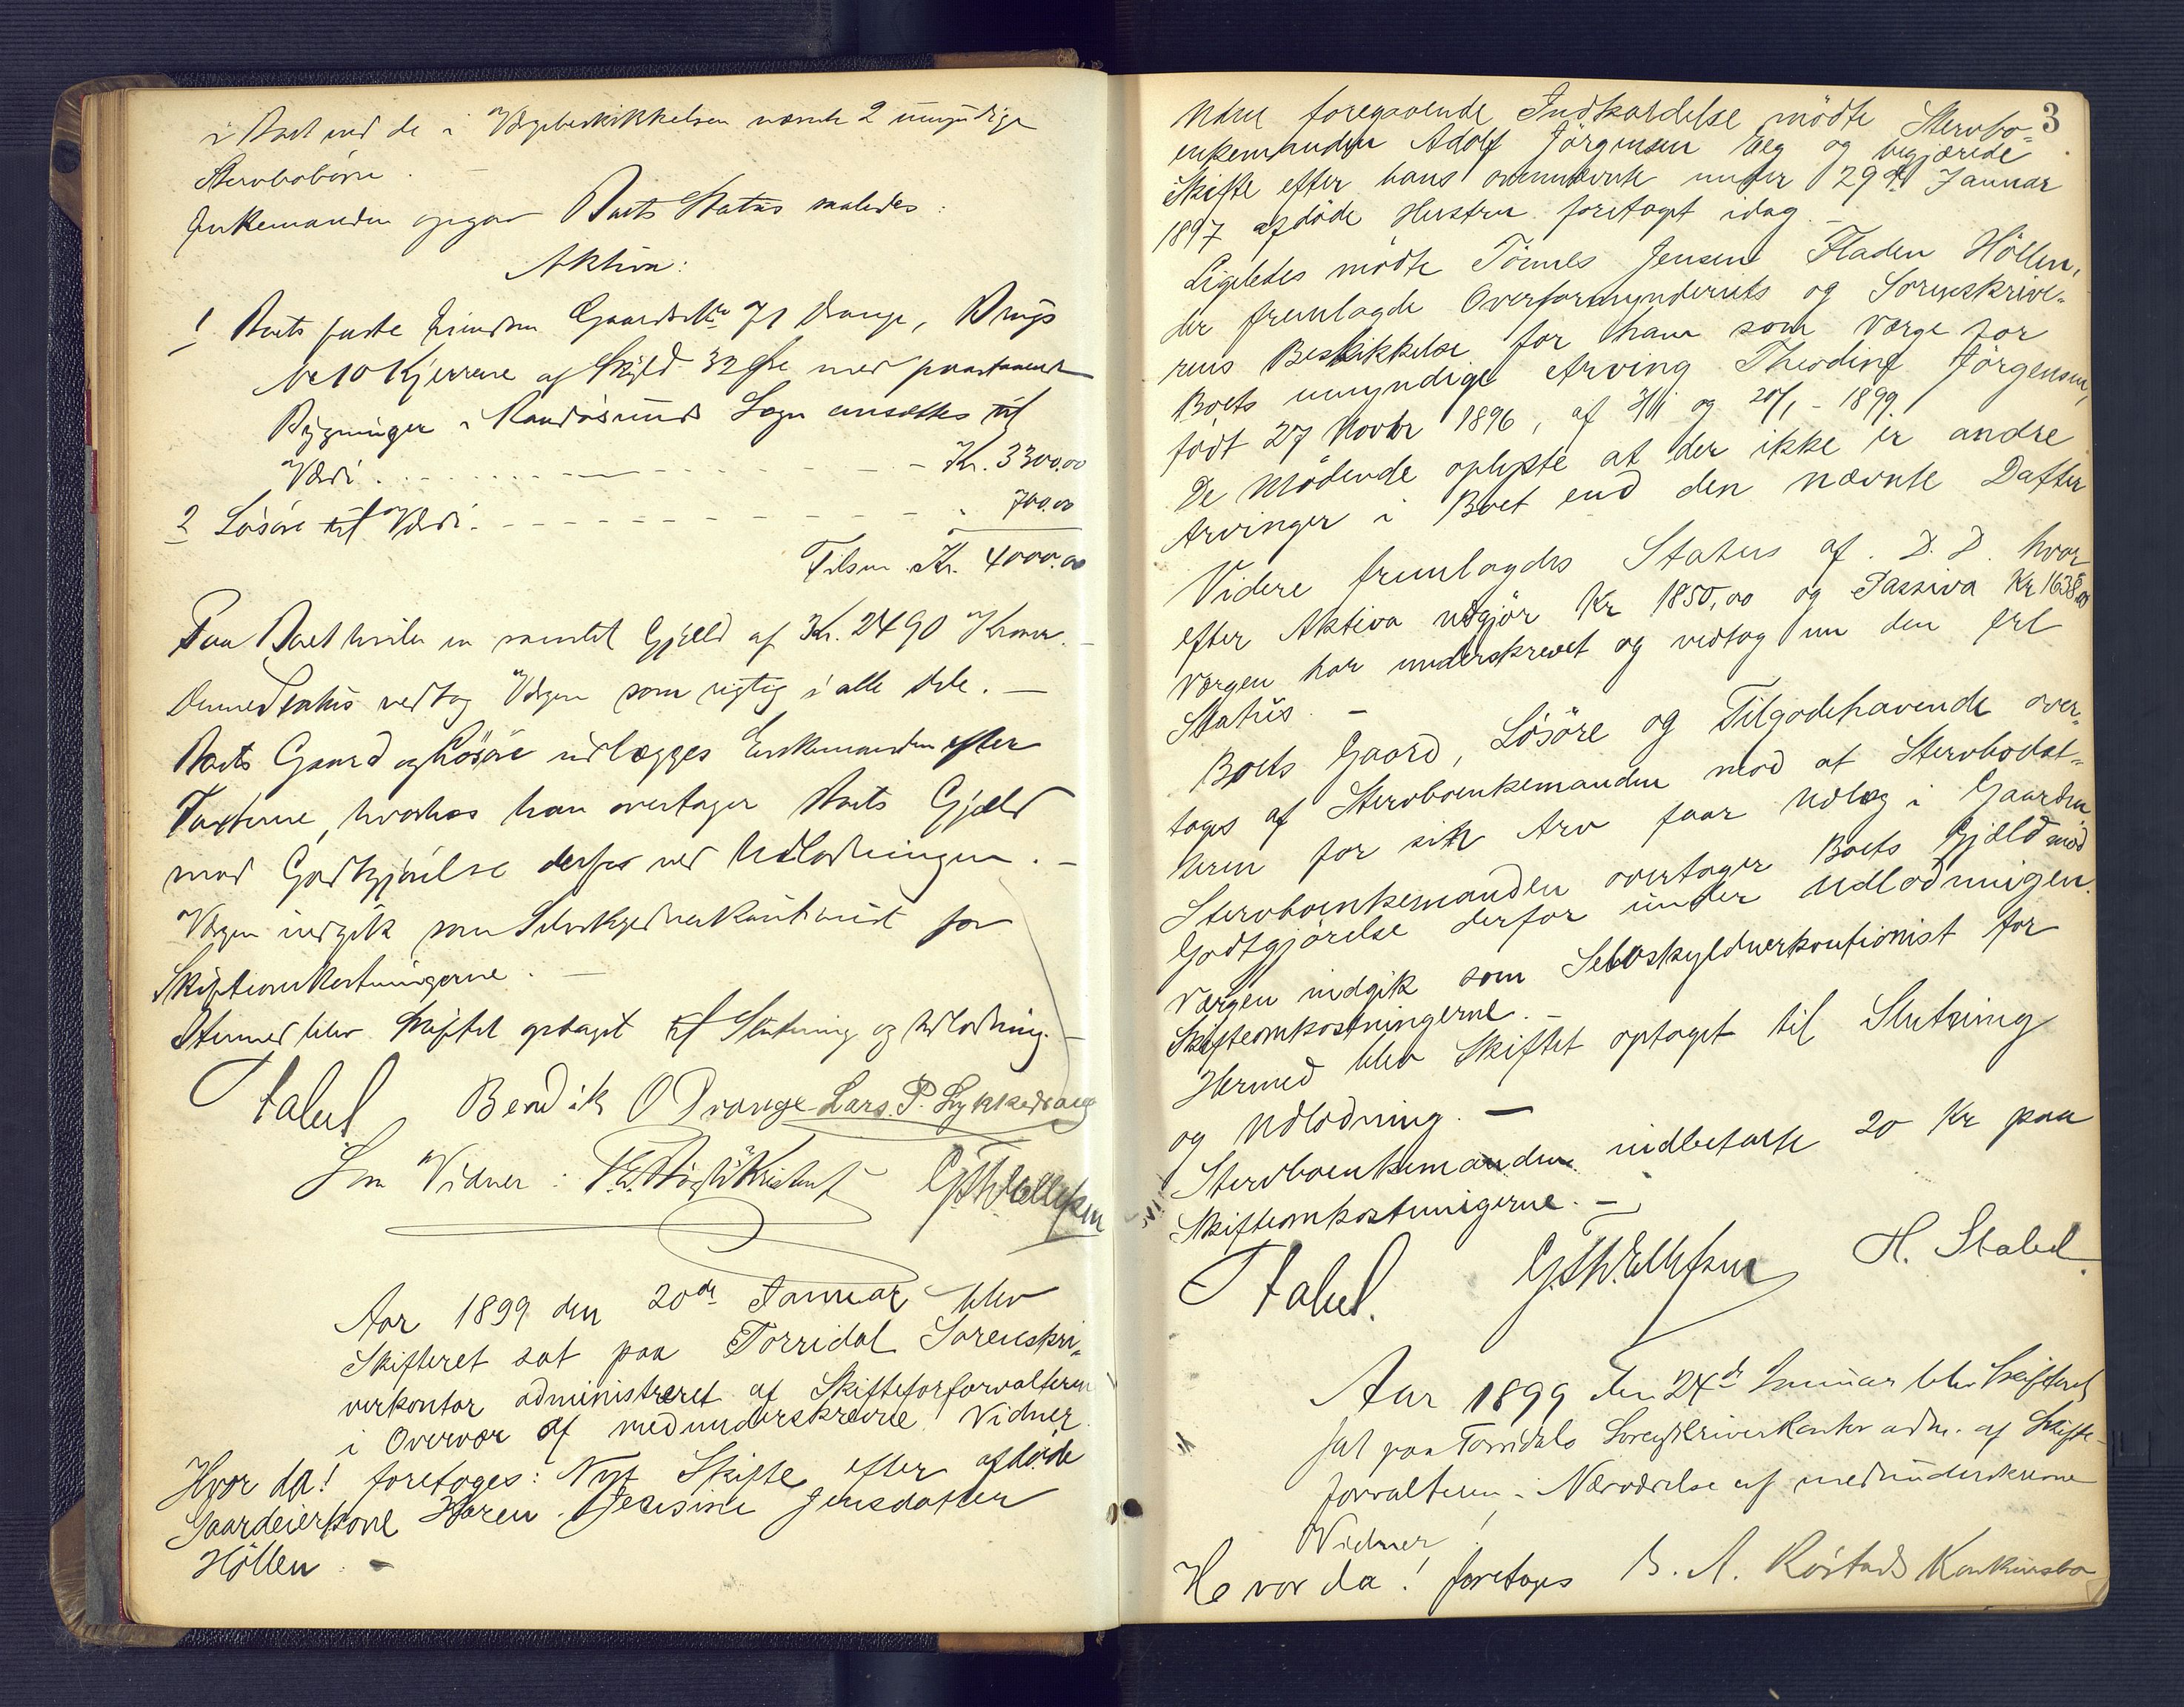 i Boet med de i Værgebeskikkelsen nævnte 2 umyndige
Stervbobörn.
Enkemanden opgav Boets Status saaledes:
Aktiva:
1 Boets faste Eiendom Gaards No 71 Drange, Brugs
No 10 Kjerrane af Skyld 32 Öre med paastaaende
Bygninger i Randösunds Sogn ansættes til
Værdi. Kr. 3300.00
2 Lösöre til Værdi. 700.00
Tilsm. Kr. 4000.00
Paa Boet hviler en samlet Gjæld af Kr. 2490 Kroner. –
Denne Status vedtog Værgen som rigtig i alle Dele. –
Boets Gaard og Lösöre udlægges Enkemanden efter
Taxterne, hvorhos han overtager Boets Gjæld
mod Godtgjörelse derfor ved Udlodningen. –
Værgen indgik som Selvskyldnerkautionist for
Skifteomkostningerne. –
Hermed blev Skiftet optaget til Slutning og Udlodning. –
Stabel Bendik O Drange Lars. P. Lykkedrang
Som Vidner: G Th Ellefsen
Aar 1899 den 20de Januar blev
Skifteret sat paa Torridal Sorenskri-
verkontor administreret af Skifteforforvalteren
i Overvær af medunderskrevne Vidner.
Hvor da! foretoges: Nyt Skifte efter afdöde
Gaardeierkone Karen Jensine Jensdatter
Höllen. –
3
Uden foregaaende Indkaldelse mödte Stervbo-
enkemanden Adolf Jörgensen Veg og begjærede
Skifte efter hans ovennævnte under 29de Januar
1897 afdöde Hustru foretaget idag. –
Ligeledes mödte Tönnes Jensen Fladen Höllen,
der fremlagde Overformynderiets og Sorenskrive-
rens Beskikkelse for ham som Værge for
Boets umyndige Arving Theodine Jörgensen,
födt 27 Novbr 1896, af og 20/1 - 1899.
De Mödende oplyste at der ikke er andre
Arvinger i Boet end den nævnte Datter
Videre fremlagdes Status af D. D. hvor
efter Aktiva udgjör Kr 1850,00 og Passiva Kr 1638,00
Værgen har underskrevet og vedtog nu den
Status. –
Boets Gaard, Lösöre og Tilgodehavende over-
tages af Stervboenkemanden mod at Stervbodat-
teren for sin Arv faar Udlæg i Gaarden
Stervboenkemanden overtager Boets Gjæld mod
Godtgjörelse derfor under Udlodningen.
Værgen indgik som Selvskyldnerkautionist for
Skifteomkostningerne. –
Hermed blev Skiftet optaget til Slutning
og Udlodning. –
Stervboenkemanden indbetalte 20 Kr paa
Skifteomkostningerne. –
Stabel. G Th. Ellefsen H. Stabel.
Aar 1899 den 24de Januar blev Skifteret
sat paa Torridals Sorenskriverkontor adm. af Skifte-
forvalteren i Nærværelse af medunderskrevne
Vidner
Hvor da! foretoges B. A. Röstads Konkursbo